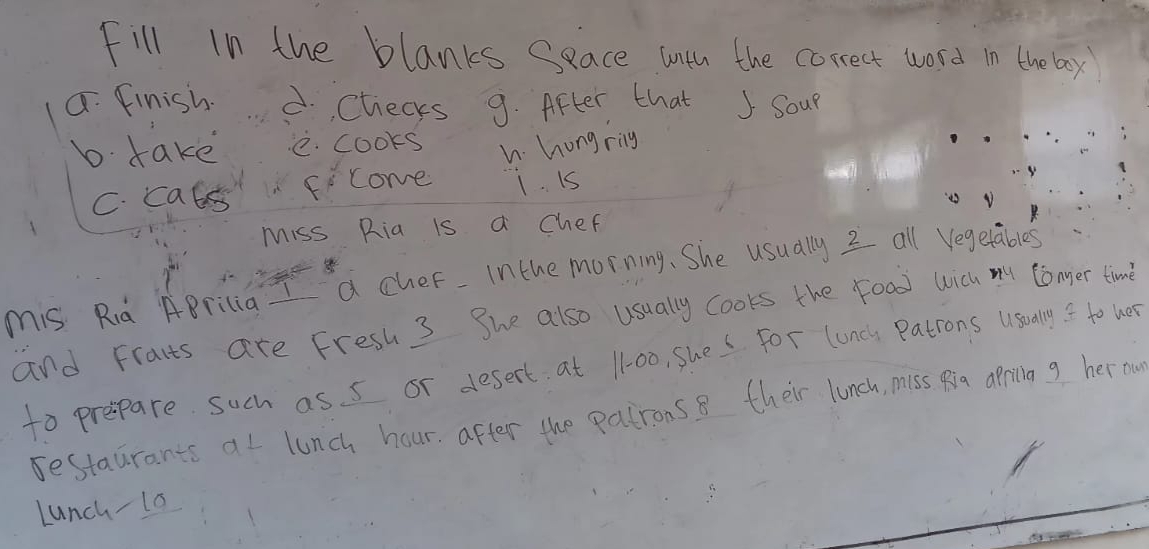 Fill in the blanks Space with the correct word in the box)
a. finish. d. Checks g. After that J. Soup
b. take e. cooks h. hungrily
c. eats f. come i. is
Miss Ria is a Chef
Mis Ria Aprilia 1 a chef - In the morning, She usually 2 all Vegetables
and fraits are Fresh 3 She also usually cooks the food wich 4 longer time
to prepare such as 5 or desert. at 11-00, she 6 For lunch Patrons usually 7 to her
restaurants at lunch hour. after the patrons 8 their lunch, miss Ria aprilia 9 her own
Lunch - 10